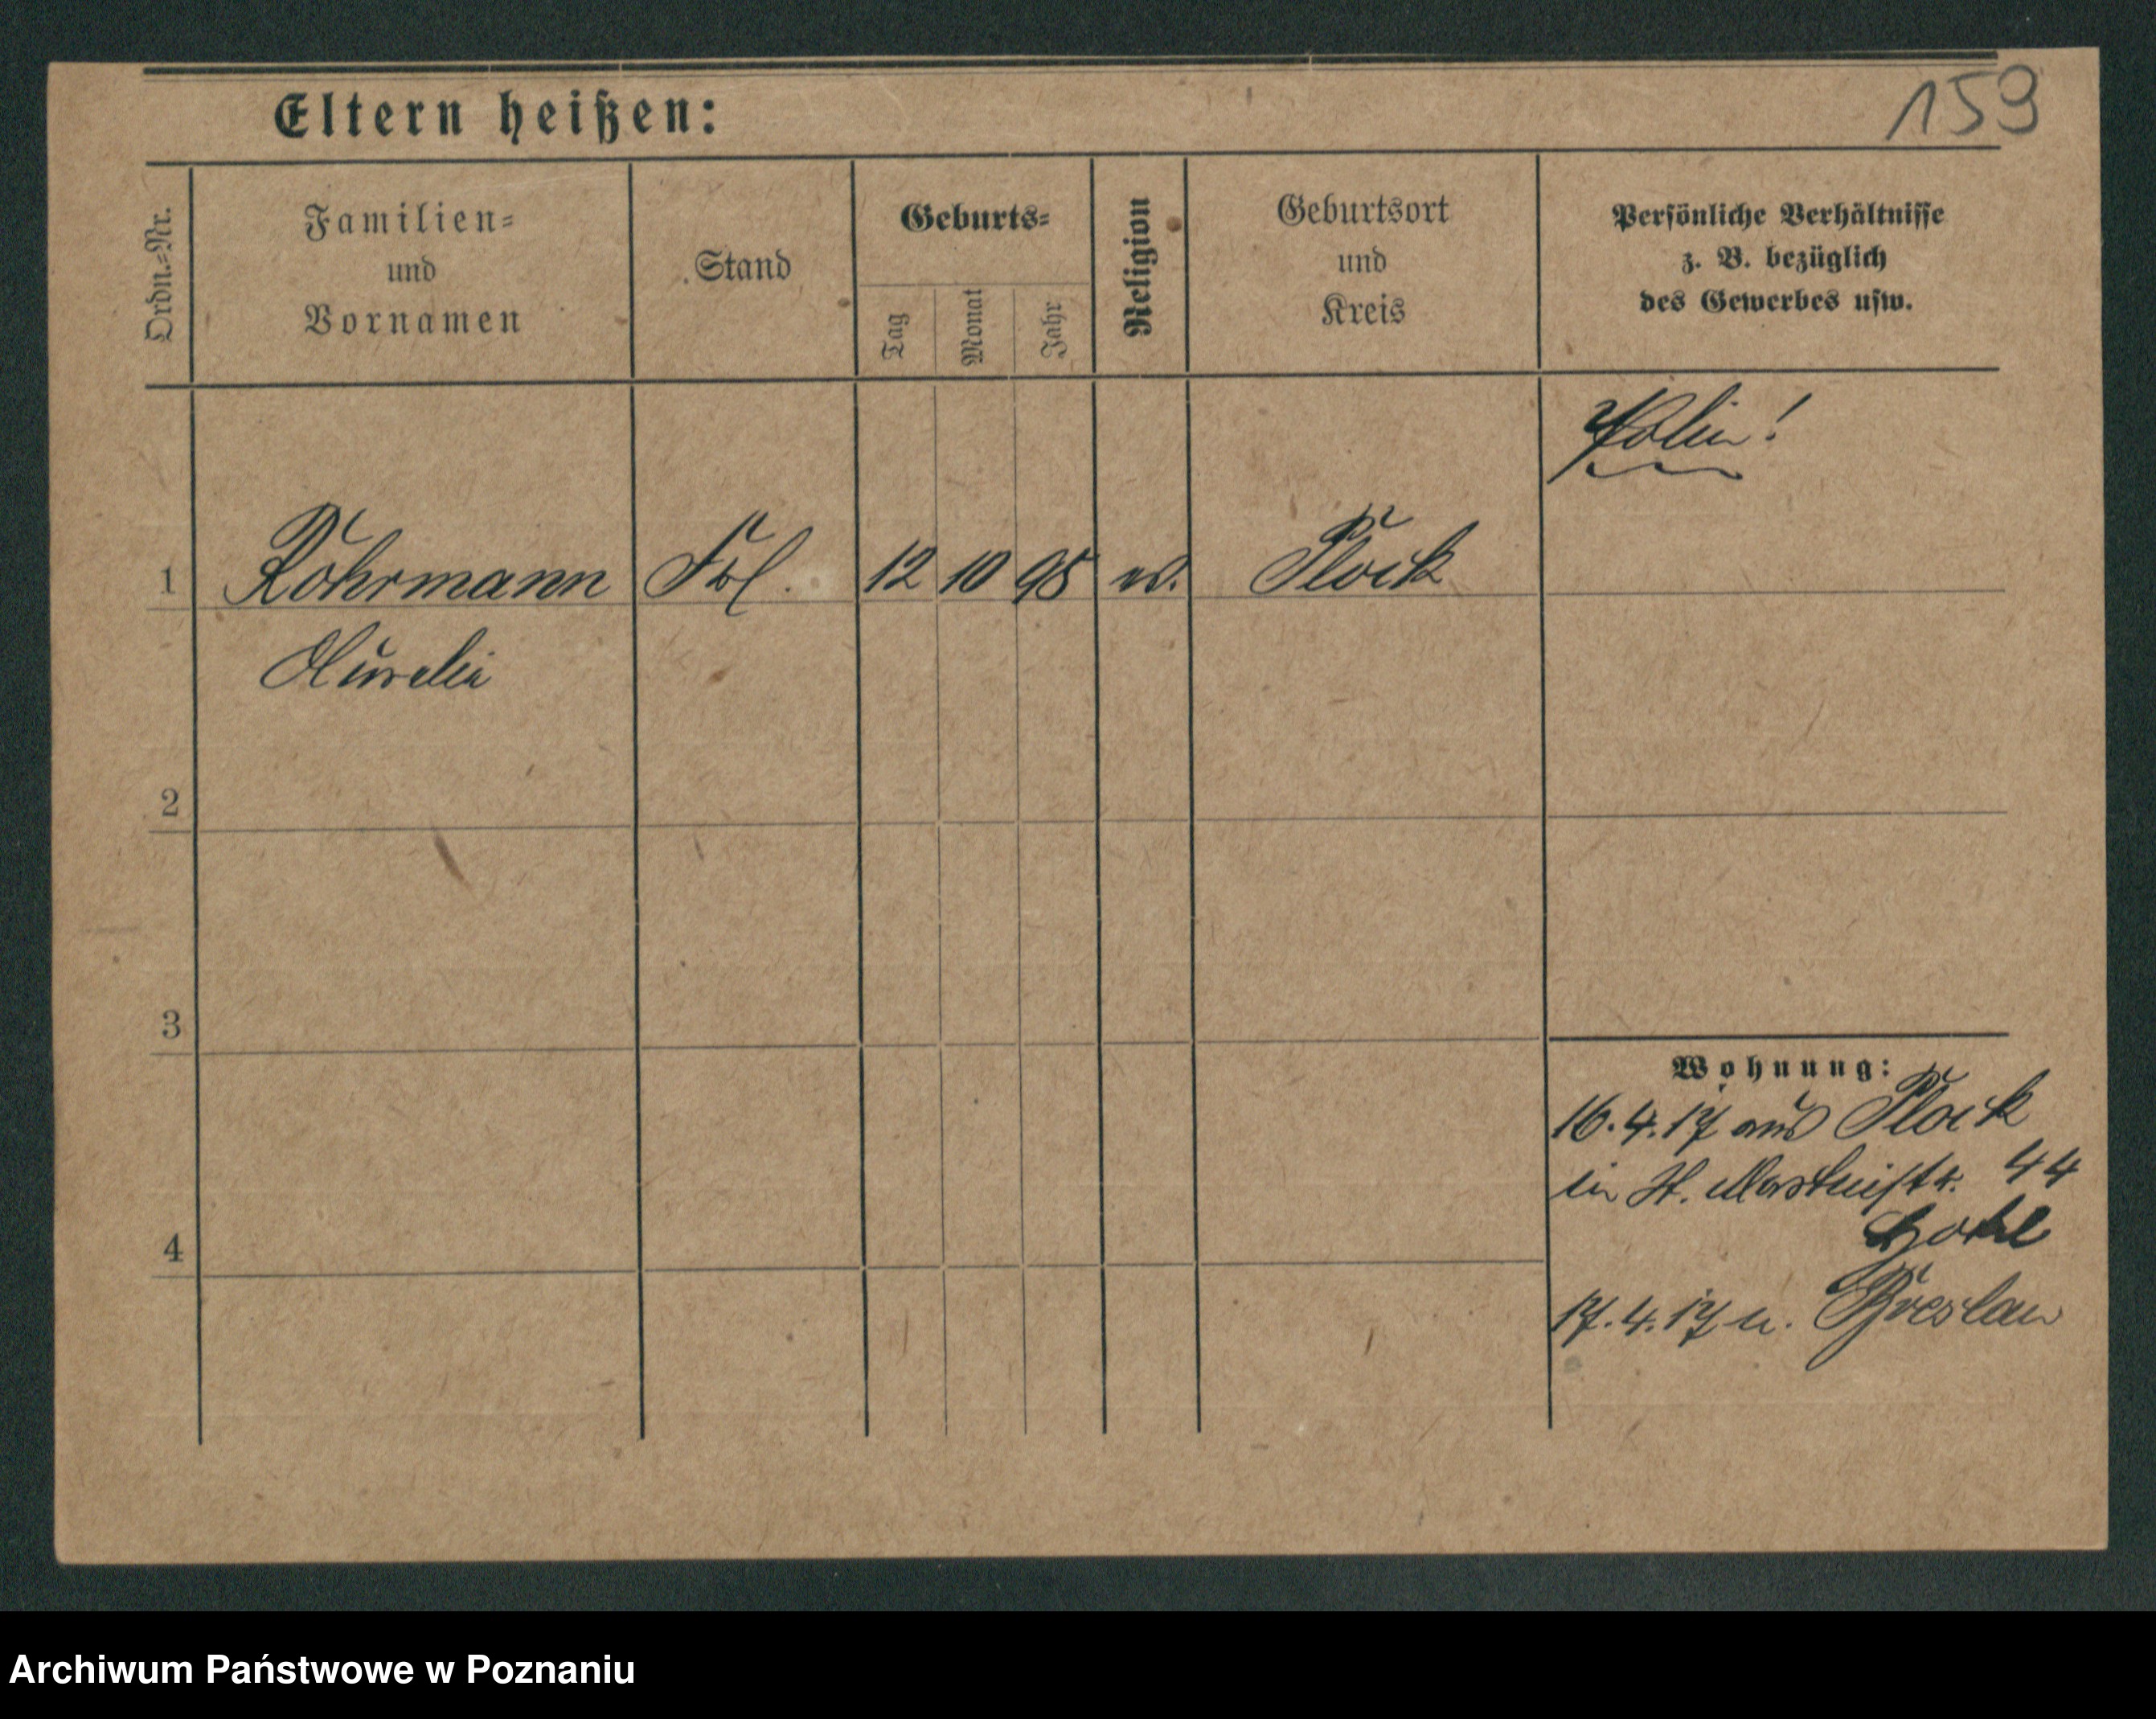 159
Eltern heißen:
Ordn.-Nr.
Familien-
und
Vornamen
Stand
Geburts-
Tag
Monat
Jahr
Religion
Geburtsort
und
Kreis
Persönliche Verhältnisse
z. B. bezüglich
des Gewerbes usw.
Polin!
1 Rohrmann Frl. 12 10 95 ev. Plock
Aurelie
2
3
Wohnung:
16.4.17 aus Plock
in St. Martinstr. 44
4
17.4.17 n. Breslau
Archiwum Państwowe w Poznaniu